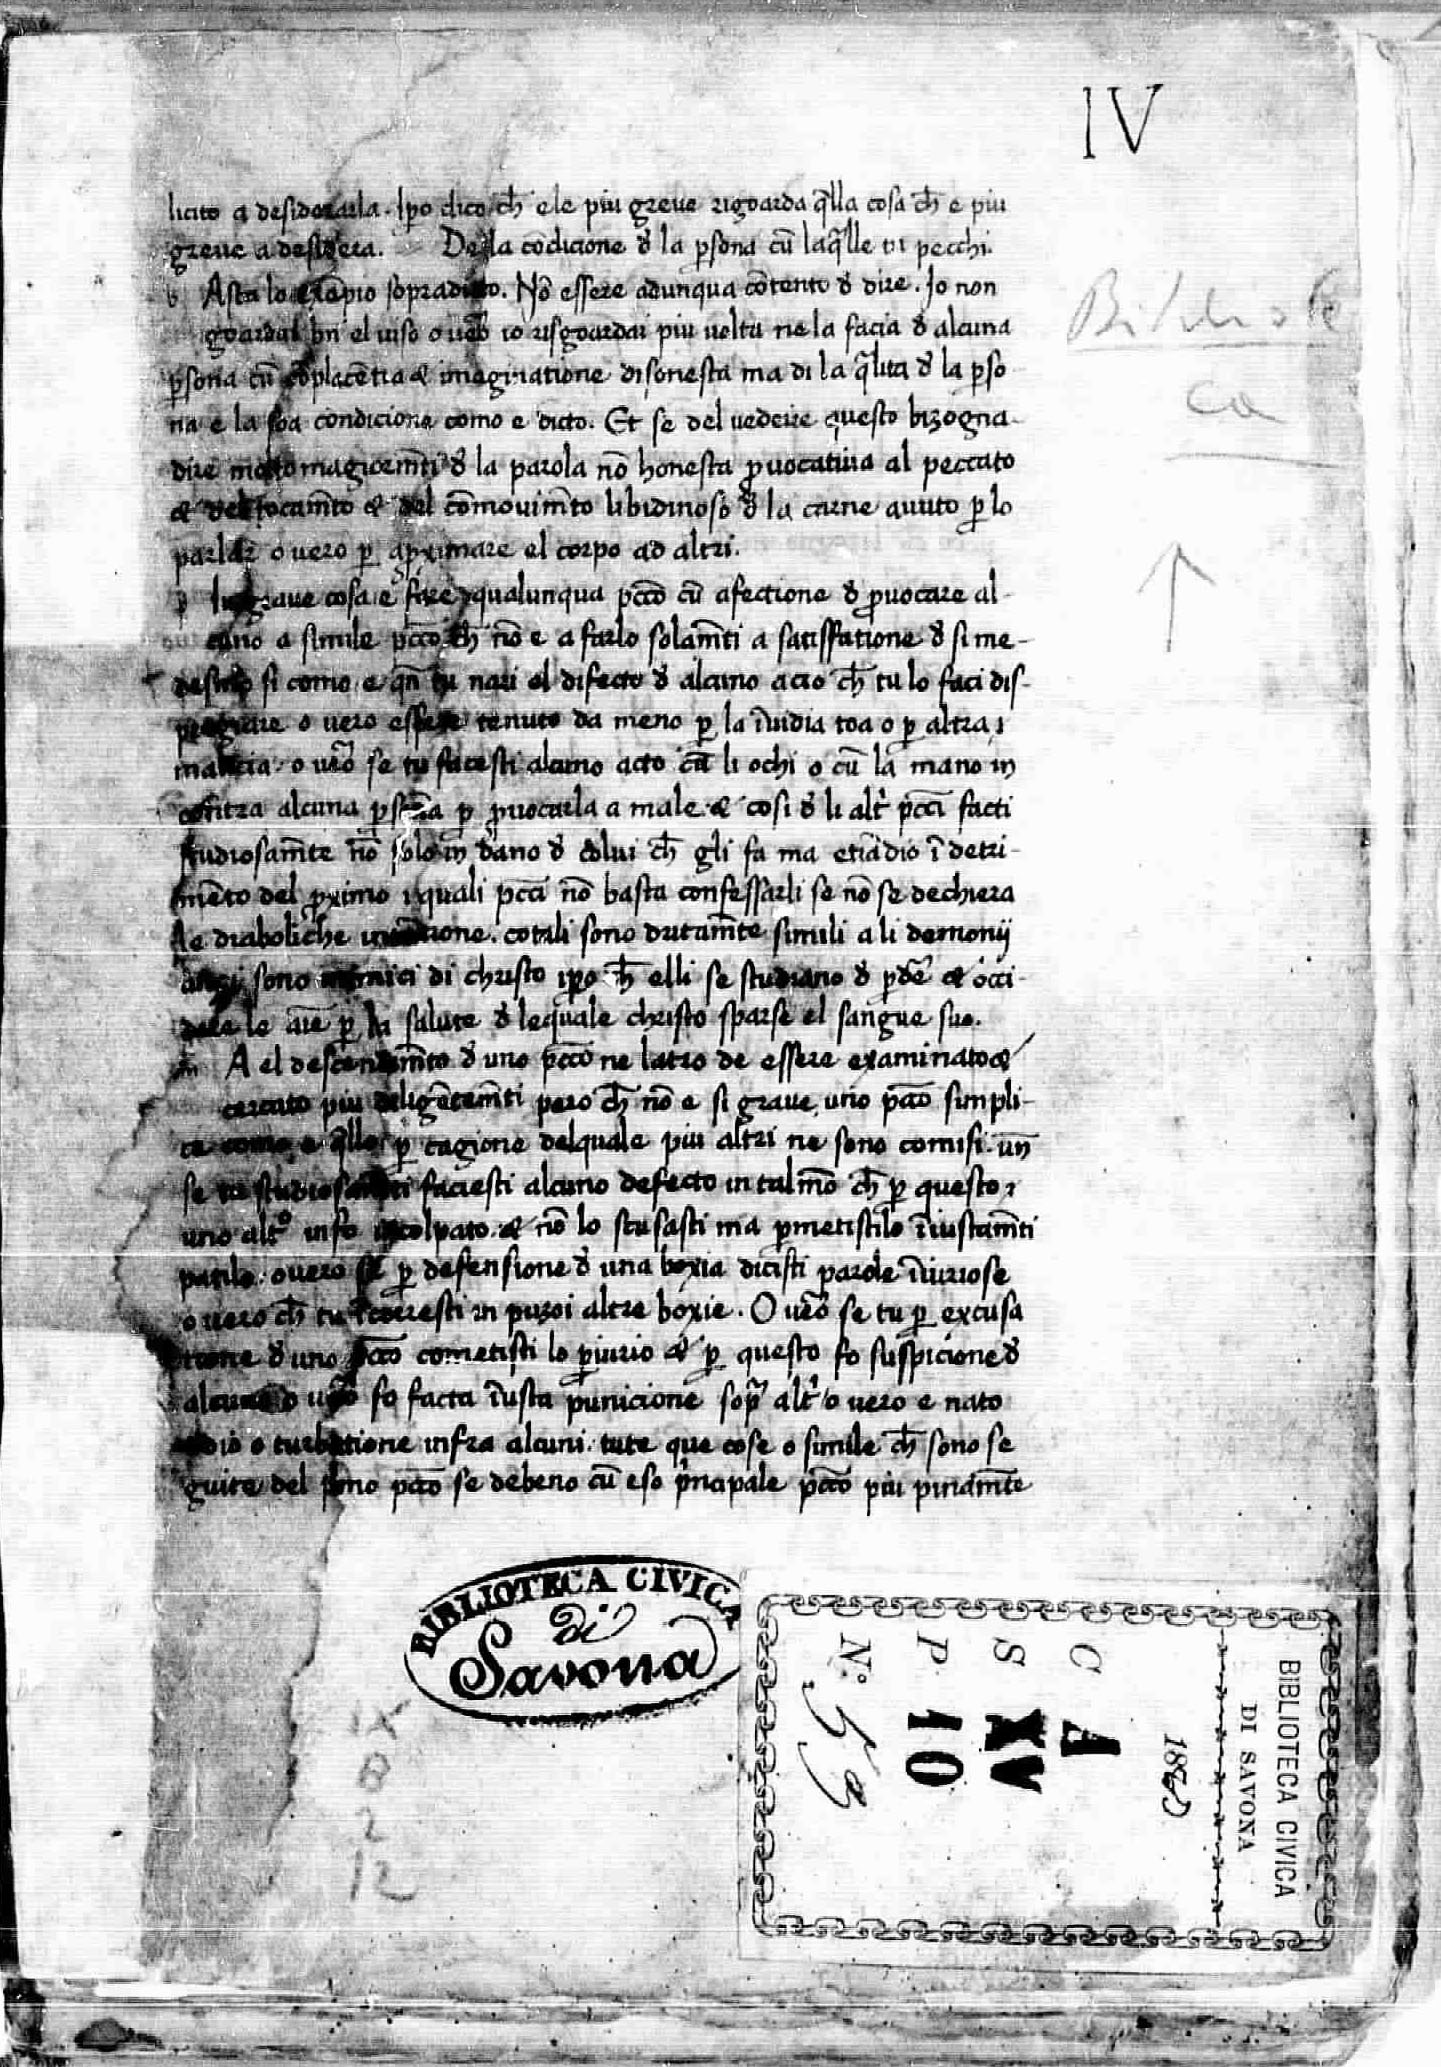 IV
licito a desiderarla. Ip̄o dico ch̄ ele piu greue rigoarda q̄lla cosa ch̄ e piu
greue a desidera. De la cōdicione đ la p̱sona cū laq̄lle tu pecchi.
Asta lo exāpio sopradicto. Nō essere adunqua cōtento đ dire. Io non
goardai bn̄ el uiso o ūo io risgoardai piu uolta ne la facia đ alcuna
p̱sona cū cōplacētia & imaginatione disonesta ma di la q̄lita đ la p̱so
na e la soa condicione como e dicto. Et se del uedere questo bizogna
dire molto magiorm̄ti đ la parola nō honesta ꝓuocatiua al peccato
& del tocam̄to & del cōmouim̄to libidinoso đ la carne auuto p̱ lo
parlar o uero p̱ aꝓximare el corpo ad altri.
graue cosa e fare qualunqua pc̄co cū afectione đ ꝓuocare al
cuno a simile pc̄co ch̄ nō e a farlo solam̄ti a satisffatione đ si me-
desmo si como e qn̄ tu nari el difecto đ alcuno acto ch̄ tu lo faci dis-
pregiare o uero essere tenuto da meno p̱ la īuidia toa o p̱ altra
malicia o ūo se tu facesti alcuno acto cū li ochi o cū la mano in
contra alcuna p̱sōa p̱ ꝓuocarla a male & cosi đ li alt̉ pc̄ci facti
studiosam̄te nō solo in dāno đ colui ch̄ gli fa ma etiādio ī detri-
mēto del ꝓximo i quali pc̄ci nō basta confessarli se nō se dechiera
le diaboliche cotali sono dritam̄te simili a li demonij
anzi sono inimici di christo ip̱o ch̄ elli se studiano đ p̱dē & occi-
dere le aīe p̱ la salute đ lequale christo sparse el sangue suo.
A el descendim̄to đ uno pc̄co ne latro de essere examinato &
cercato piu deligētem̄ti pero ch̄ nō e si graue uno pc̄co simpli-
ce como e q̄llo p̱ cagione delquale piu altri ne sono comisi. un̄
se tu studiosam̄ti faciesti alcuno defecto in tal mō ch̄ p̱ questo
uno alt̊ in fo incolpato & nō lo scusasti ma p̱metistilo īiustam̄ti
patilo. o uero se p̱ defensione đ una boxia dicisti parole īiuriose
o uero ch̄ tu in puzoi altre boxie. O ūo se tu p̱ excusa
tione đ uno pc̄co cometisti lo p̱iurio & p̱ questo fo suspicione đ
alcuno o ūo fo facta īiusta punicione sop̄ alt̉ o uero e nato
odio o turbatione infra alcuni. tute que cose o simile ch̄ sono se
guite del pimo pc̄co se debeno cū eso p̉ncipale pc̄co piu pinam̄te
Bibliote
ca
BIBLIOTECA CIVICA
di
Savona
IX
B
2
12
BIBLIOTECA CIVICA
DI SAVONA
C A
S XV
P 10
N.°